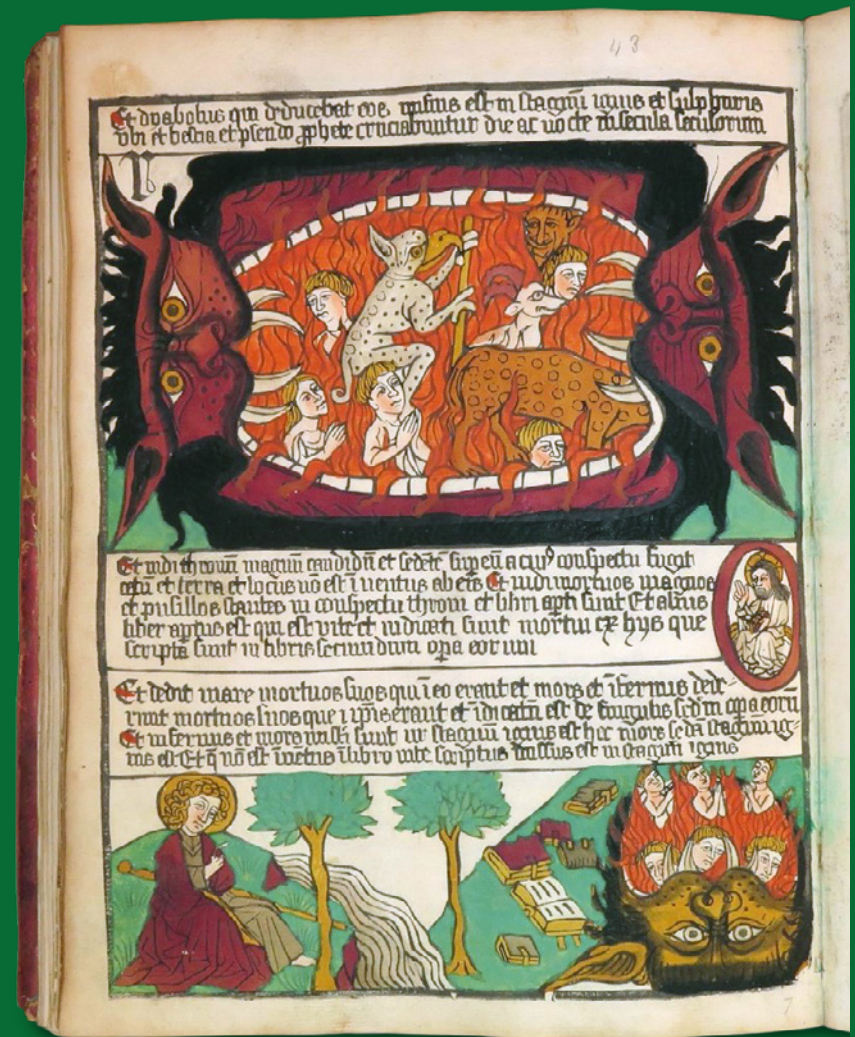 43
Et dyabolus qui deducebat eos missus est in stagnu ignis et sulphuris
vbi et bestia et pseudo pphete cruciabuntur die ac nocte in secula seculorum
Et vidi thronu magnu candidu et sedete sup eu a cui9 conspectu fugit
celu et terra et locus no est inuentus ab eis Et vidi mortuos magnos
et pusillos stantes in conspectu throni et libri apti sunt Et alius
liber aptus est qui est vite et iudicati sunt mortui ex hys que
scripta sunt in libris secundum opa eorum
Et dedit mare mortuos suos qui i eo erant et mors et ifernus dede
runt mortuos suos que i ipis erant et iudicatu est de singulis scdm opa eoru
Et infernus et mors missi sunt in stagnu ignis est hec mors scda stagnum ig
nis est Et q no est inuetus i libro vite scriptus missus est in stagnu ignis